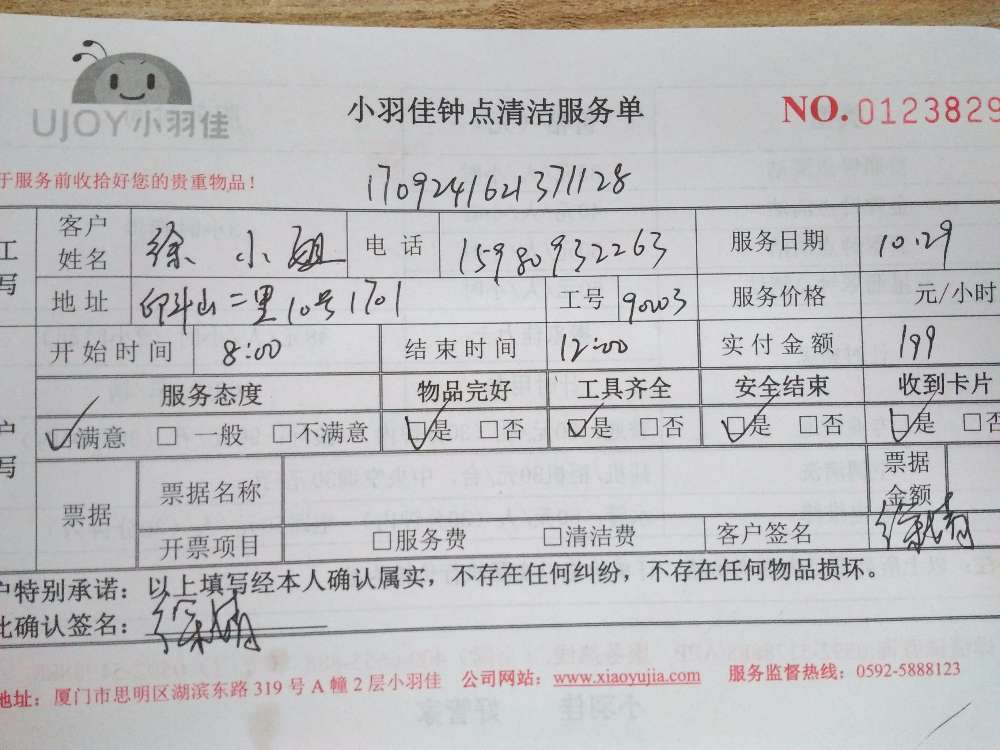 UJOY小羽佳
小羽佳钟点清洁服务单 NO.0123829
于服务前收拾好您的贵重物品！
170924162137112８
工 客户姓名 徐小姐 电话 15980932263 服务日期 10.29
写 地址 卬斗山二里10号1701 工号 90003 服务价格 元/小时
开始时间 8:00 结束时间 12:00 实付金额 199
服务态度 物品完好 工具齐全 安全结束 收到卡片
户 □满意 □一般 □不满意 □是 □否 □是 □否 □是 □否 □是 □否
写 票据 票据名称 票据金额
开票项目 □服务费 □清洁费 客户签名
户特别承诺：以上填写经本人确认属实，不存在任何纠纷，不存在任何物品损坏。
此确认签名：
地址：厦门市思明区湖滨东路319号A幢2层小羽佳 公司网站：www.xiaoyujia.com 服务监督热线：0592-5888123